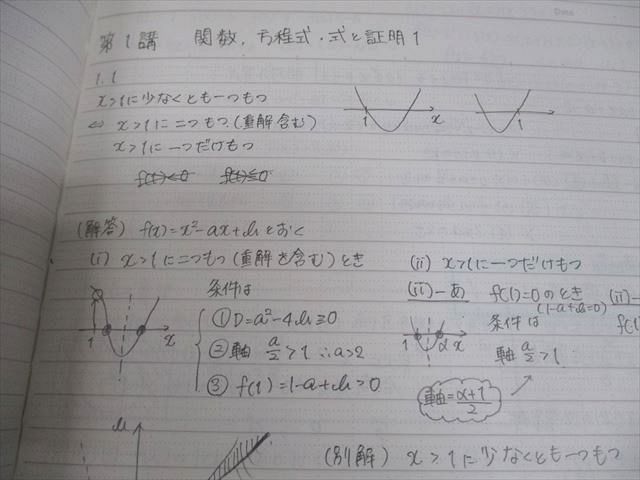 Date
第1講 関数, 方程式・式と証明1
1.1
x>1に少なくとも一つもつ
⇔ x>1に二つもつ(重解含む)
x>1に一つだけもつ
1 x
1
f(1)<0 f(1)≦0
(解答) f(x)=x²-ax+bとおく
(i) x>1に二つもつ(重解を含む)とき
条件は
①D=a²-4b≧0
②軸 a/2>1 ∴a>2
③ f(1)=1-a+b>0
1 x
(ii) x>1に一つだけもつ
(ii)-あ f(1)=0のとき
(1-a+b=0)
条件は
軸 a/2>1
1 α x
軸=α+1/2
(ii)-
f(1)
b
(別解) x>1に少なくとも一つもつ